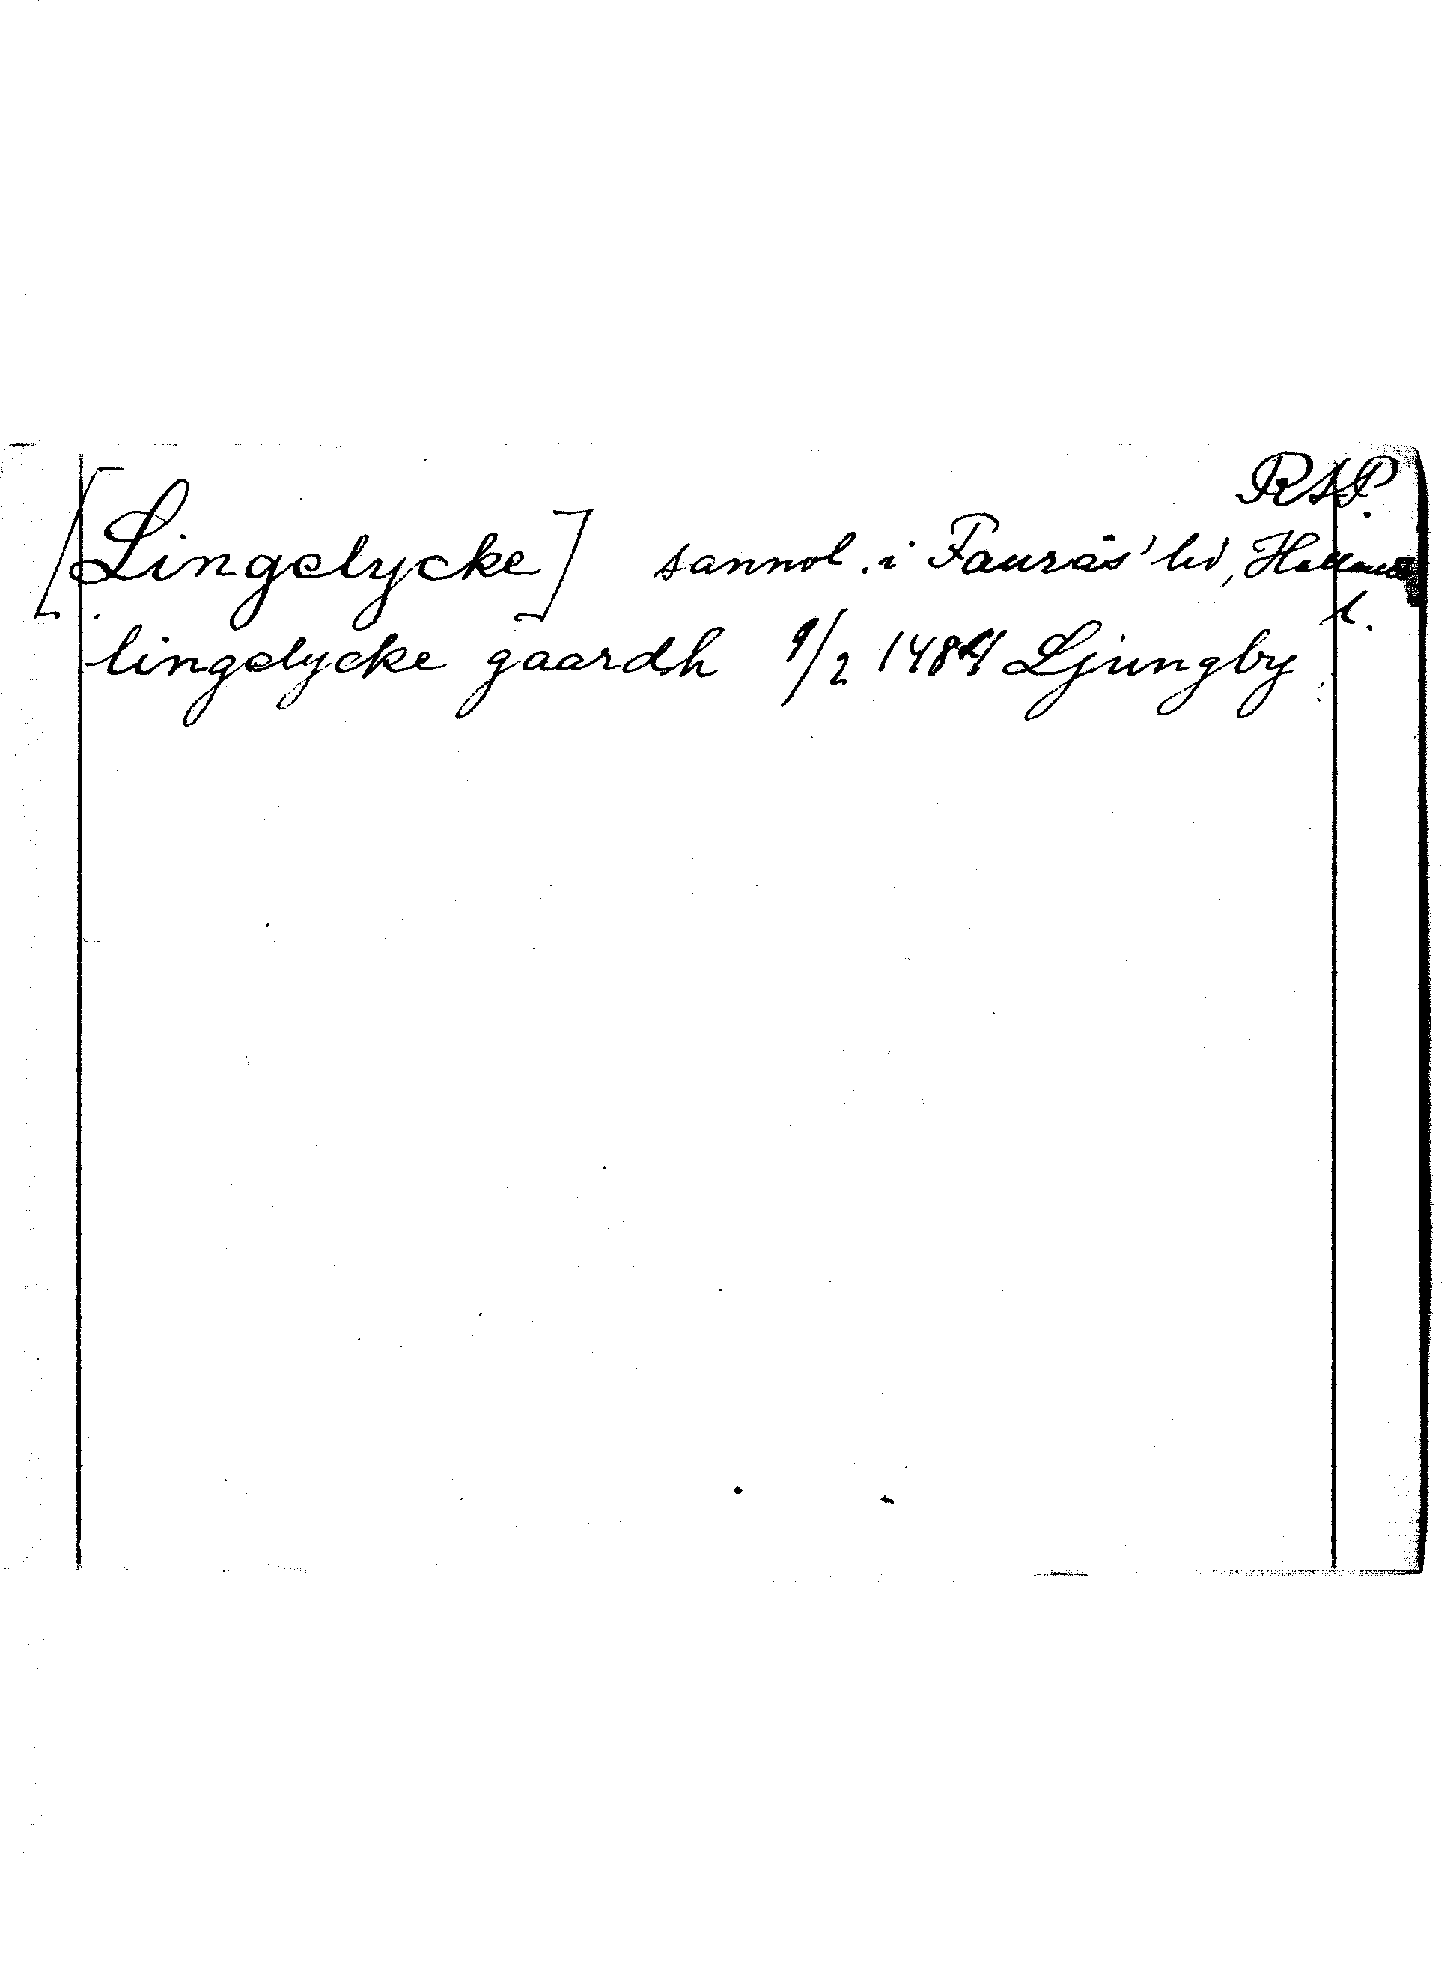 RAP.
[Lingelycke] sannol. i Faurås' hd, Hallands
l.
lingelycke gaardh 9/2 1484 Ljungby